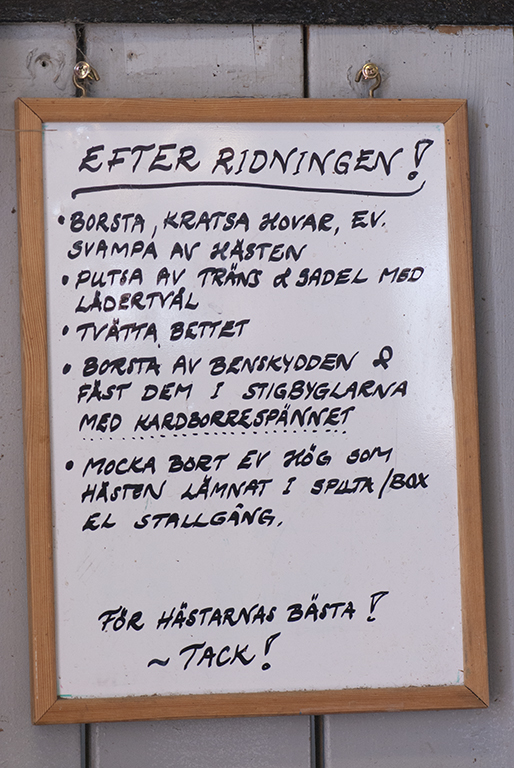 EFTER RIDNINGEN!
• BORSTA, KRATSA HOVAR, EV.
SVAMPA AV HÄSTEN
• PUTSA AV TRÄNS & SADEL MED
LÄDERTVÅL
• TVÄTTA BETTET
• BORSTA AV BENSKYDDEN &
FÄST DEM I STIGBYGLARNA
MED KARDBORRESPÄNNET
• MOCKA BORT EV HÖG SOM
HÄSTEN LÄMNAT I SPILTA/BOX
EL STALLGÅNG.
FÖR HÄSTARNAS BÄSTA!
~ TACK!